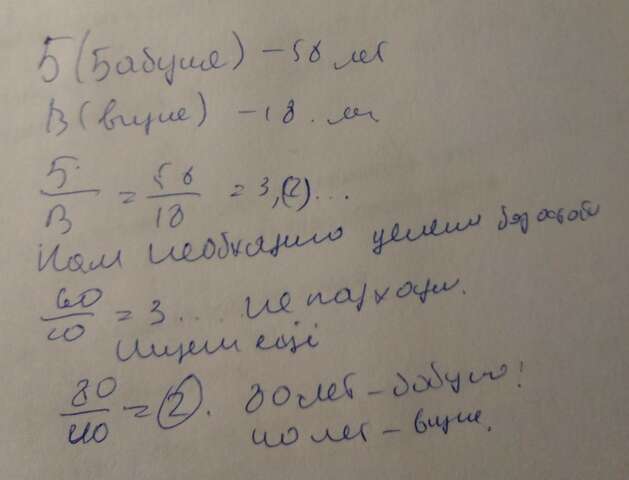 Б (Бабушке) – 58 лет
В (внуке) – 18. лет
Б/В = 58/18 = 3,(2)...
Нам необходимо целое без остатка
60/20 = 3... не подходит.
Ищем ещё
80/40 = 2. 80 лет – бабушке!
40 лет – внуке.